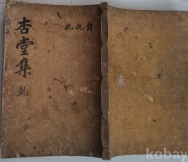 杏堂集 乾
kobay